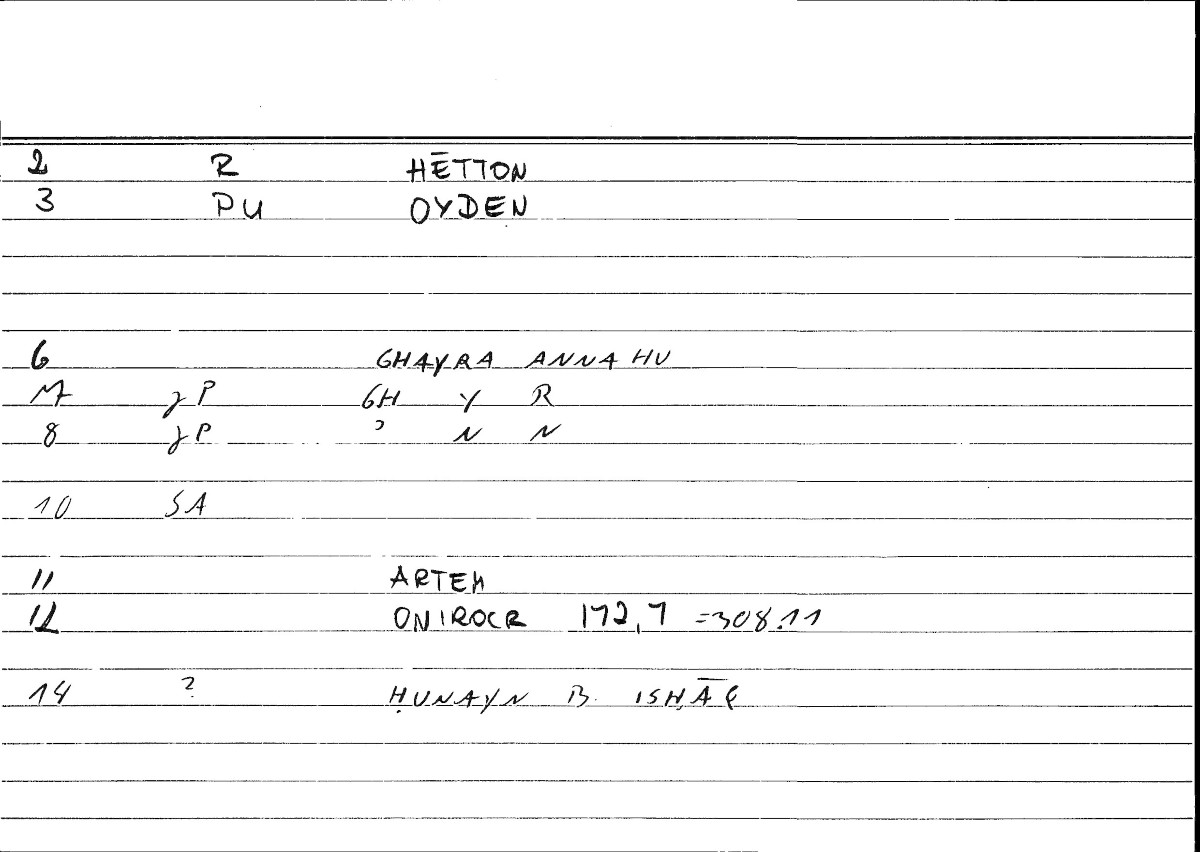 2 R HĒTTON
3 PU OYDEN
6 GHAYRA ANNAHU
7 γP GH Y R
8 γP ʾ N N
10 SA
11 ARTEM
12 ONIROCR 172,7 =308.11
14 ? ḤUNAYN B. ISḤĀQ